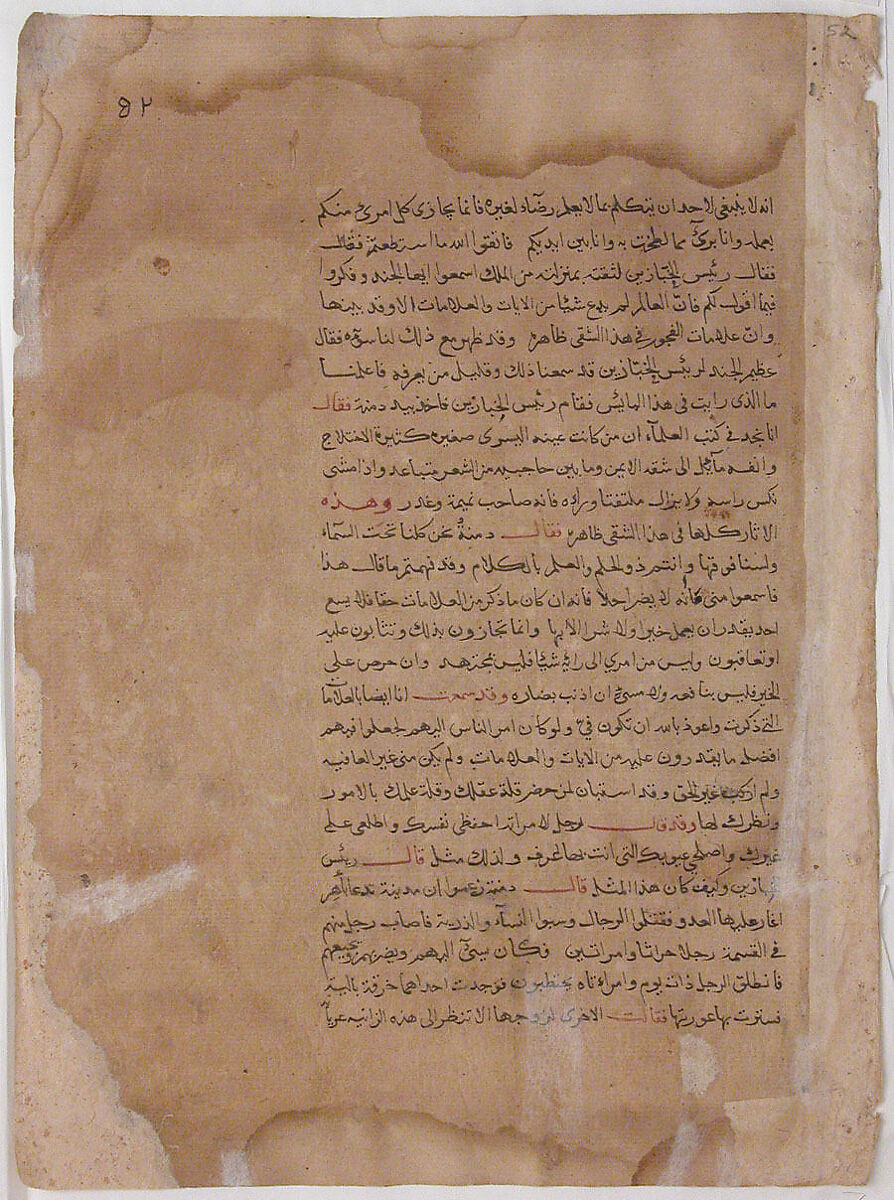 52
٨٢
انه لا ينبغى لاحد ان يتكلم بما لا يعلم رضاء لغيره فانما يجازى كل امرئ منكم
بعمله وانا برئ مما لطخت به وانا بين ايديكم فاتقوا الله ما استطعتم فقال
فقال رئيس الخبازين لثقته بمنزلته من الملك اسمعوا ايها الجند وفكروا
فيما اقول لكم فان العالم لم يدع شيا من الايات والعلامات الا وقد بينها
وان علامات الفجور فى هذا الشقى ظاهره وقد ظهر مع ذلك لنا سوءه فقال
عظيم الجند لرئيس الخبازين قد سمعنا ذلك وقليل من يعرفه فاعلمنا
ما الذى رايت فى هذا البائس فقام رئيس الخبازين فاخذ بيد دمنة فقال
انا نجد فى كتب العلمآء ان من كانت عينه اليسرى صغيره كثيرة الاختلاج
وانفه مآئل الى شقه الايمن وما بين حاجبيه من الشعر متباعد واذا مشى
نكس راسه ولا يزال ملتفتا وراءه فانه صاحب نميمة وغدر وهذه
الاثار كلها فى هذا الشقى ظاهره فقال دمنة نحن كلنا تحت السمآء
ولسنا فوقها وانتم ذو الحلم والعلم بالكلام وقد فهمتم ما قال هذا
فاسمعوا منى فانه لا يضر احدا فانه ان كان ما ذكر من العلامات حقا فلا يسع
احد يقدر ان يعمل خيرا ولا شرا الا بها وانما تجازون بذلك وتثابون عليه
او تعاقبون وليس من امرئ الى رايه شيا فليس بمجتهد وان حرص على
الخير فليس بنافعه ولا مسئ ان اذنب بضاره وقد سمعت انا ايضا بالعلامات
التى ذكرت واعوذ بالله ان تكون فى ولو كان امر الناس اليهم لجعلوا فيهم
افضل ما يقدرون عليه من الايات والعلامات ولم يكن منى غير العافيه
ولم اركب غير الحق وقد استبان لمن حضر قلة عقلك وقلة علمك بالامور
ونظرك لها وقد قال رجل لامراته احفظى نفسك واطلعى على
غيرك واصلحى عيوبك التى انت بها اعرف ولذلك مثل قال رئيس
الخبازين وكيف كان هذا المثل قال دمنة زعموا ان مدينة تدعا
اغار عليها العدو فقتلوا الرجال وسبوا النسآء والذرية فاصاب رجل منهم
فى القسمة رجلا حراثا وامراتين فكان يسئ اليهم ويضربهم ويجيعهم
فانطلق الرجل ذات يوم وامراتاه يحتطبون فوجدت احداهما خرقة بالية
فسترت بها عورتها فقالت الاخرى لزوجها الا تنظر الى هذه الزانيه